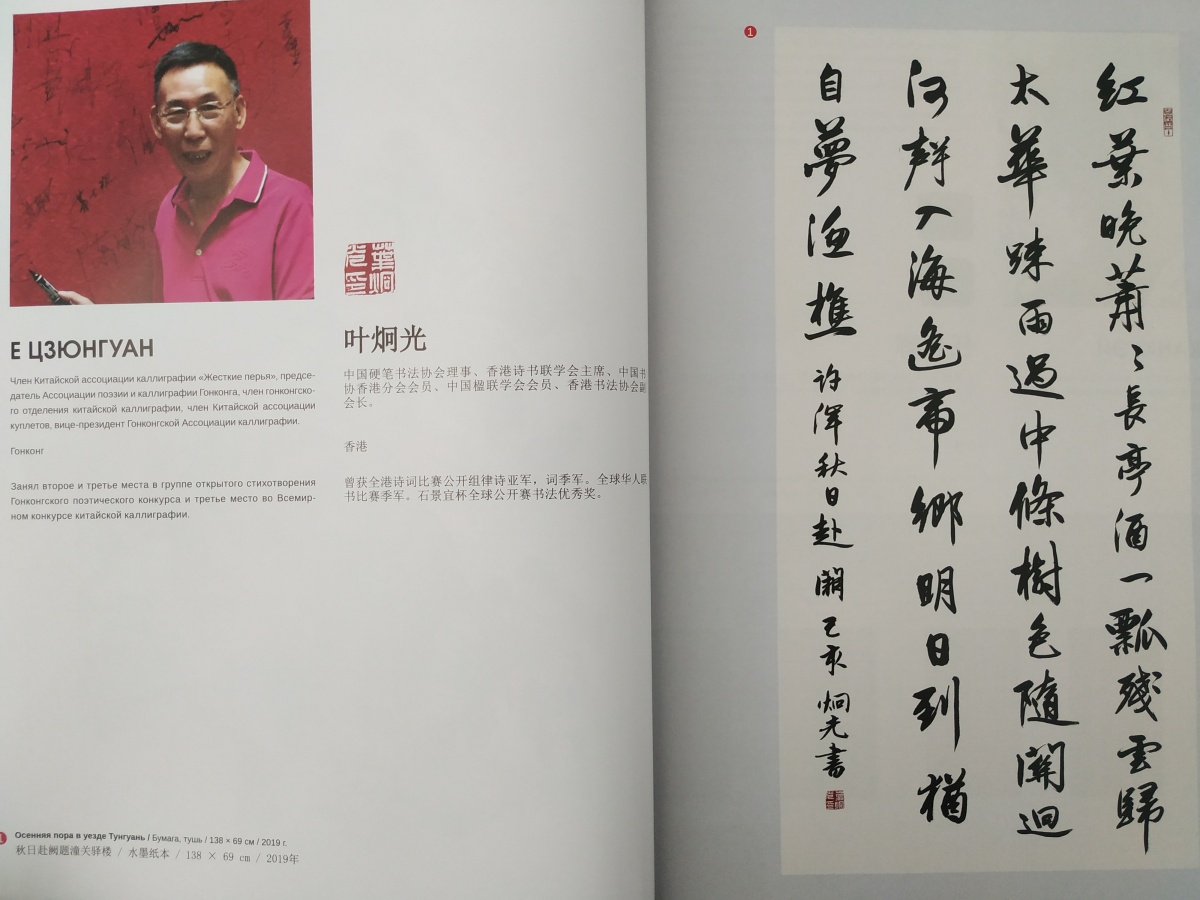 Е ЦЗЮНГУАН
Член Китайской ассоциации каллиграфии «Жесткие перья», предсе-
датель Ассоциации поэзии и каллиграфии Гонконга, член гонконгско-
го отделения китайской каллиграфии, член Китайской ассоциации
куплетов, вице-президент Гонконгской Ассоциации каллиграфии.
Гонконг
Занял второе и третье места в группе открытого стихотворения
Гонконгского поэтического конкурса и третье место во Всемир-
ном конкурсе китайской каллиграфии.
葉炯光印
叶炯光
中国硬笔书法协会理事、香港诗书联学会主席、中国书
协香港分会会员、中国楹联学会会员、香港书法协会副
会长。
香港
曾获全港诗词比赛公开组律诗亚军，词季军。全球华人联
书比赛季军。石景宜杯全球公开赛书法优秀奖。
1
Осенняя пора в уезде Тунгуань / Бумага, тушь / 138 × 69 см / 2019 г.
秋日赴阙题潼关驿楼 / 水墨纸本 / 138 × 69 cm / 2019年
1
紅葉晚蕭〻長亭酒一瓢殘雲歸
太華踈雨過中條樹色隨關迥
河聲入海遙帝鄉明日到猶
自夢漁樵 許渾秋日赴闕 己亥 炯光書